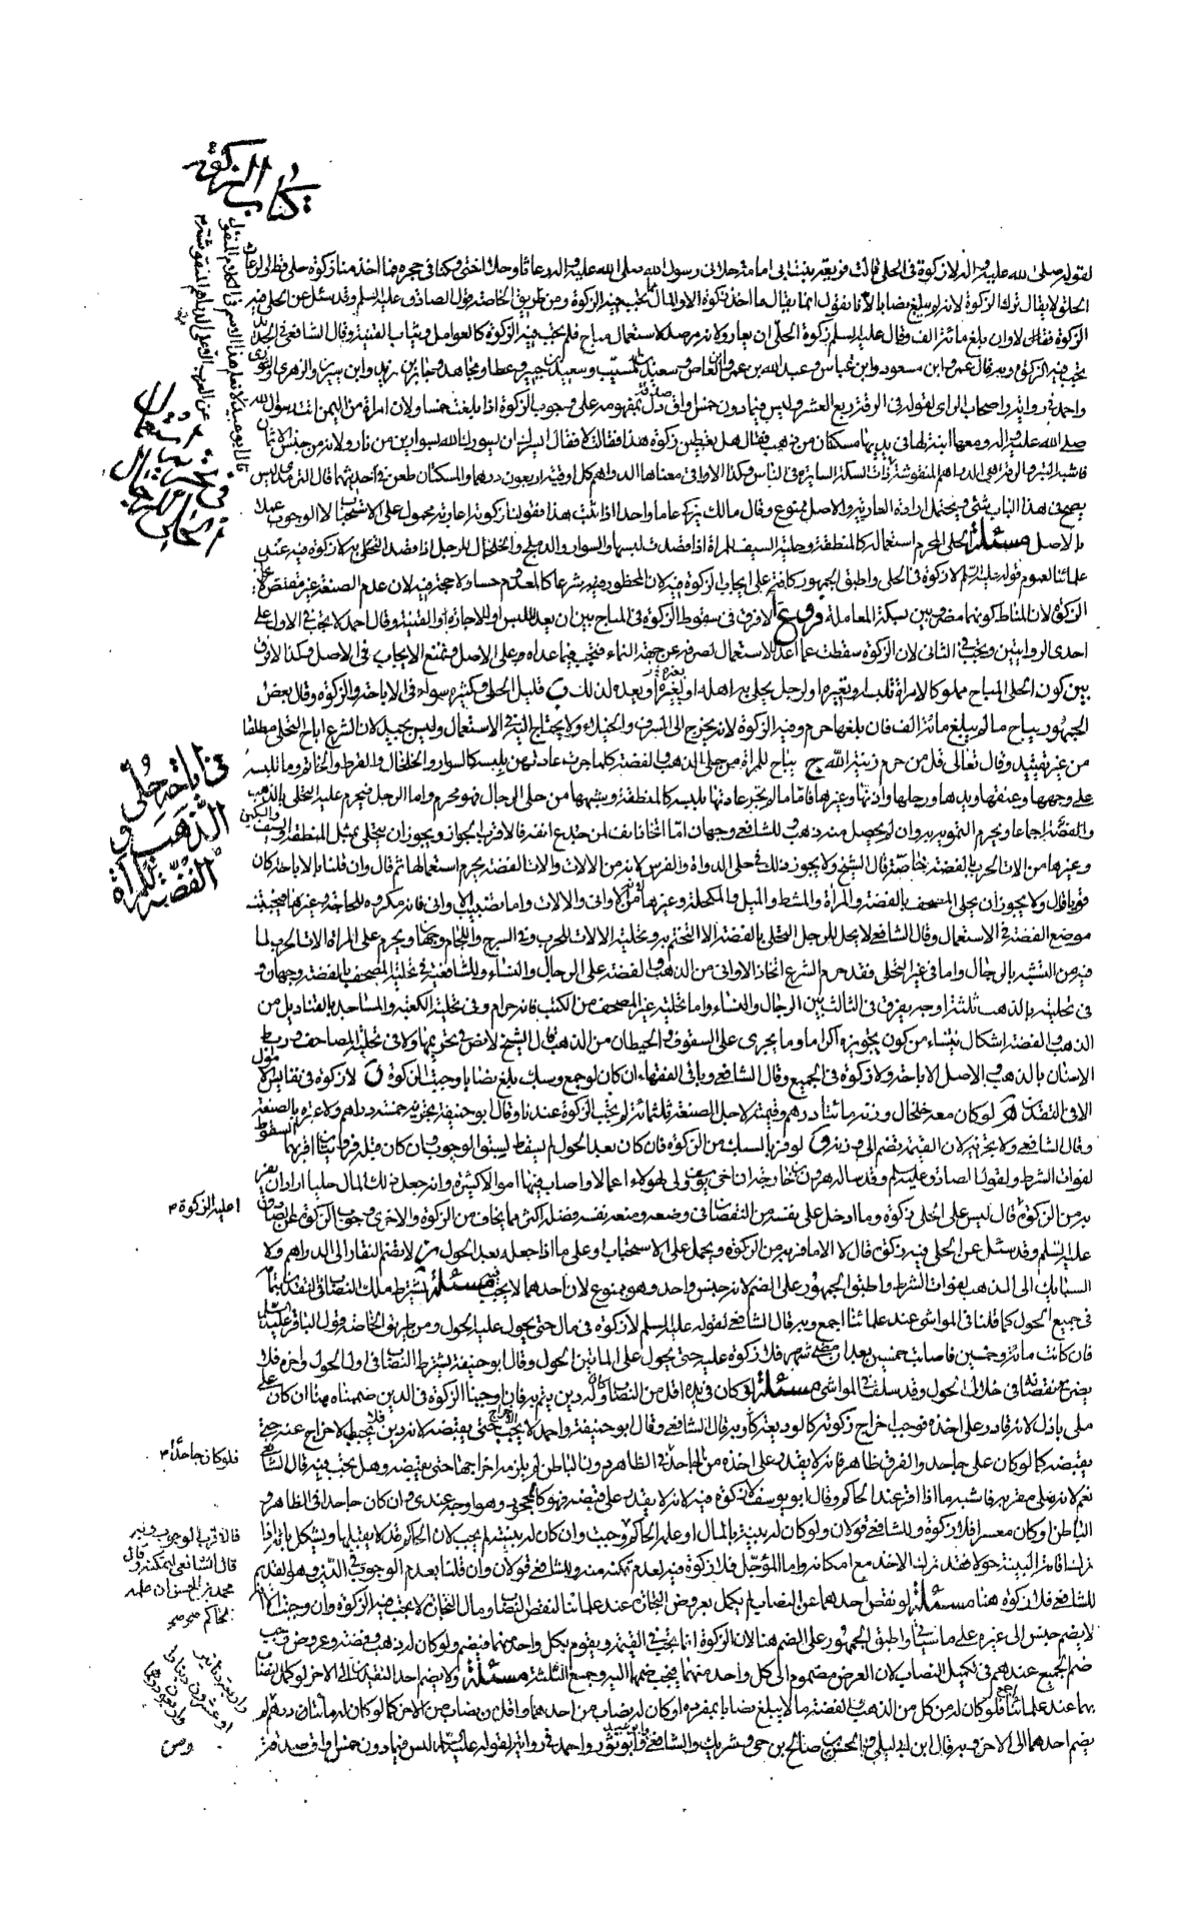 كتاب الزكوة
لقوله صلى الله عليه و اله لا زكوة في الحلى قالت فريعة بنت ابى امامة حلانى رسول الله صلى الله عليه و اله رعاثا وحلى اختى وكنا في حجره فما اخذ منا زكوة حلى قط الرعاث
الحلق لا يقال ترك الزكوة لانه لم يبلغ نصابا لأنا نقول انما يقال ما اخذ زكوة الا والمال تجب فيه الزكوة ومن طريق الخاصة قول الصادق عليه السلم وقد سئل عن الحلى فيه
الزكوة فقال لا وان بلغ مائة الف وقال عليه السلم زكوة الحلى ان يعار ولانه مرصد لاستعمال مباح فلم تجب فيه الزكوة كالعوامل وثياب القنية وقال الشافعى في الجديد
تجب فيه الزكوة وبه قال عمر وابن مسعود وابن عباس وعبد الله بن عمرو بن العاص وسعيد بن المسيب وسعيد بن جبير وعطا ومجاهد وجابر بن زيد وابن سيرين والزهرى والثورى
واحمد في رواية واصحاب الراى لقوله في الرقة ربع العشر وليس فيما دون خمس اواق صدقة دل بمفهومه على وجوب الزكوة اذا بلغت خمسا ولان امراة من اليمن اتت رسول الله
صلى الله عليه و اله ومعها ابنة لها في يديها مسكتان من ذهب فقال هل تعطين زكوة هذا فقالت لا فقال ايسرك ان يسورك الله بسوارين من نار ولانه من جنس الاثمان
فاشبه التبر والرقة هى الدراهم المنقوشة ذات السكة السايرة في الناس وكذا الاواقى معناها الدراهم كل اوقية اربعون درهما والمسكتان طعن في احديثهما قال الترمذى ليس
يصح في هذا الباب شئ ويحتمل ارادة العارية والاصل ممنوع وقال مالك يزكى عاما واحدا اذا ثبت هذا فقولنا زكوته اعارته محمول على الاستحباب لا الوجوب عملا
بالاصل مسئلة الحلى المحرم استعماله كالمنطقة وحلية السيف للمراة اذا قصدت لبسها والسوار والدملج والخلخال للرجل اذا قصد التحلى به لا زكوة فيه عند
علمائنا لعموم قوله عليه السلم لا زكوة في الحلى واطبق الجمهور كافة على ايجاب الزكوة فيه لان المحظور فيه شرعا كالمعدوم حسا ولا حجة فيه لان عدم الصنعة غير مقتض لايجاب
الزكوة لان المناط كونهما مضروبين بسكة المعاملة فروع ا لا فرق في سقوط الزكوة في المباح بين ان يعد للبس او للاجارة او القنية وقال احمد لا يجب في الاول على
احدى الروايتين ويجب في الثانى لان الزكوة سقطت عما اعد للاستعمال لصرفه عن جهة النماء فيجب فيما عداه وعلى الاصل ونمنع الايجاب في الاصل وكذا لا فرق
بين كون الحلى المباح مملوكا لامراة تلبسه او تعيره او لرجل يحلى به اهله او يعيره او يعده لذلك ب قليل الحلى وكثيره سواء في الاباحة والزكوة وقال بعض
الجمهور يباح ما لم يبلغ مائة الف فان بلغها حرم وفيه الزكوة لانه يخرج الى السرف والخيلاء ولا يحتاج اليه في الاستعمال وليس بجيد لان الشرع اباح التحلى مطلقا
من غير تقييد وقال تعالى قل من حرم زينة الله ج يباح للمراة من حلى الذهب والفضة كلما جرت عادتهن بلبسه كالسوار والخلخال والقرط والخاتم وما تلبسه
على وجهها وعنقها ويدها ورجلها واذنها وغيرها فاما ما لم يجر عادتها بلبسه كالمنطقة وشبهها من حلى الرجال فهو محرم واما الرجل فيحرم عليه التحلى بالذهب
والفضة اجماعا ويحرم التمويه به وان لم يحصل منه ذهب وللشافعى وجهان اما اتخاذ انف لمن جدع انفه فالاقرب الجواز ويجوز ان يتحلى بمثل المنطقة والسيف والسكين
وغيرها من الات الحرب بالفضة خاصة قال الشيخ ولا يجوز ذلك في حلى الدواة والفرس لانه من الالات والات الفضة يحرم استعمالها ثم قال وان قلنا بالاباحة كان
قويا قال ولا يجوز ان يحلى المصحف بالفضة والمراة والمشط والميل والمكحلة وغيرها لانه من الاوانى والالات واما تضبيب الاوانى فانه مكروه للحاجة وغيرها فيجتنب
موضع الفضة في الاستعمال وقال الشافعى لا يحل للرجل التحلى بالفضة الا التختم به وتحلية الات الحرب وفي السرج واللجام وجهان ويحرم على المراة الات الحرب لما
فيه من التشبه بالرجال واما في غير التحلى فقد حرم الشرع اتخاذ الاوانى من الذهب والفضة على الرجال والنساء وللشافعية في تحلية المصحف بالفضة وجهان و
في تحليته بالذهب ثلثة اوجه يفرق في الثالث بين الرجال والنساء واما تحلية غير المصحف من الكتب فانه حرام وفي تحلية الكعبة والمساجد بالقناديل من
الذهب والفضة اشكال ينشاء من كون تجويزه اكراما وما يجرى على السقوف والحيطان من الذهب قال الشيخ لا نص في تحريمها ولا في تحلية المصاحف وربط
الاسنان بالذهب والاصل الاباحة ولا زكوة في الجميع وقال الشافعى وباقى الفقهاء ان كان لو جمع وسبك بلغ نصابا وجبت الزكوة د لا زكوة في نقائر الاموال
الا في النقدين ه لو كان معه خلخال وزنه مائتا درهم وقيمته لاجل الصنعة ثلثمائة لم تجب الزكوة عندنا وقال ابو حنيفة يجزيه خمسة دراهم ولا عبرة بالصنعة
وقال الشافعى لا يجزيه لان القيمة تضم الى وزنه و لو فر بالسبك من الزكوة فان كان بعد الحول لم يسقط لسبق الوجوب وان كان قبله فروايتان اقربهما السقوط
لفوات الشرط ولقول الصادق عليه السلم وقد ساله هرون بن خارجة ان اخى يوسف ولى لهولاء اعمالا واصاب فيها اموالا كثيرة وانه جعل ذلك المال حليا اراد ان يفر
به من الزكوة قال ليس على الحلى زكوة وما ادخل على نفسه من النقصان في وضعه ومنعه نفسه فضله اكثر مما يخاف من الزكوة والاخرى وجوب الزكوة لان الصادق
عليه السلم وقد سئل عن الحلى فيه زكوة قال لا الا ما فر به من الزكوة ويحمل على الاستحباب وعلى ما اذا جعله بعد الحول ز لا يضم النقار الى الدراهم ولا
السبايك الى الذهب لفوات الشرط واطبق الجمهور على الضم لانه جنس واحد وهو ممنوع لان احدهما لا يجب فيه مسئلة يشترط ملك النصاب في النقدين بتمامه
في جميع الحول كما قلنا في المواشى عند علمائنا اجمع وبه قال الشافعى لقوله عليه السلم لا زكوة في مال حتى يحول عليه الحول ومن طريق الخاصة قول الباقر عليه السلم
فان كانت مائة وخمسين فاصابت خمسين بعد ان مضى شهر فلا زكوة عليه حتى يحول على المائتين الحول وقال ابو حنيفة يشترط النصاب في اول الحول واخره فلا
يضر نقصانه في خلال الحول وقد سلف في المواشى مسئلة لو كان في يده اقل من النصاب وكان له دين يتم به فان اوجبنا الزكوة في الدين ضممناه هنا ان كان على
ملى باذل لانه قادر على اخذه فوجب اخراج زكوته كالوديعة وبه قال الشافعى وقال ابو حنيفة واحمد لا يجب الاخراج حتى يقبضه لانه دين فلا يجب الاخراج عنه حتى
يقبضه كما لو كان على جاحد والفرق ظاهر فانه لا يقدر على اخذه من الجاحد في الظاهر دون الباطن لم يلزمه اخراجها حتى يقبضه وهل يجب فيه قال الشافعى
نعم لانه على مقر به فاشبه ما اذا اقر عند الحاكم وقال ابو يوسف لا زكوة فيه لانه لا يقدر على قبضه فهو كالمجحود وهو اوجه عندى وان كان جاحدا في الظاهر و
الباطن او كان معسرا فلا زكوة وللشافعى قولان ولو كان له بينة بالمال او علم الحاكم وجبت وان كان له بينة لم يجب لان الحاكم قد لا يقبلها ويشكل بانه اذا
ترك اقامة البينة حولا فقد ترك الاخذ مع امكانه واما المؤجل فلا زكوة فيه لعدم تمكنه منه وللشافعى قولان وان قلنا بعدم الوجوب في الدين وهو القديم
للشافعى فلا زكوة هنا مسئلة لو نقص احدهما عن النصاب لم يكمل بعروض التجارة عند علمائنا لنقص النصاب ومال التجارة لا تجب فيه الزكوة وان وجبت الا انه
لا يضم جنس الى غيره على ما سياتى واطبق الجمهور على الضم هنا لان الزكوة انما تجب في القيمة ويقوم بكل واحد منهما فيضم ولو كان له ذهب وفضة وعروض وجب
ضم الجميع عندهم في تكميل النصاب لان العرض مضموم الى كل واحد منهما فيجب ضمهما اليه وجمع الثلثة مسئلة ولا يضم احد النقدين الى الاخر لو كمل النصاب
بهما عند علمائنا اجمع فلو كان له من كل من الذهب والفضة ما لا يبلغ نصابا بمفرده او كان له نصاب من احدهما واقل من نصاب من الاخر كما لو كان له مائتا درهم لم
يضم احدهما الى الاخر وبه قال ابن ابى ليلى والحسن بن صالح بن حى وشريك والشافعى وابو عبيد وابو ثور واحمد في رواية لقوله عليه السلم ليس فيما دون خمس اواق صدقة
قال ابو عبيد لا نعلم هذا الاسم في الكلام المنقول
عن العرب الا على الدراهم المنقوشة
في تحريم استعمال
الحلى للرجال
في اباحة حلى
الذهب و
الفضة للمراة
اعليه الزكوة م
فلو كان جاحدا م
فالاقرب الوجوب وبه
قال الشافعى لتمكنه وقال
محمد بن الحسن ان علمه
الحاكم